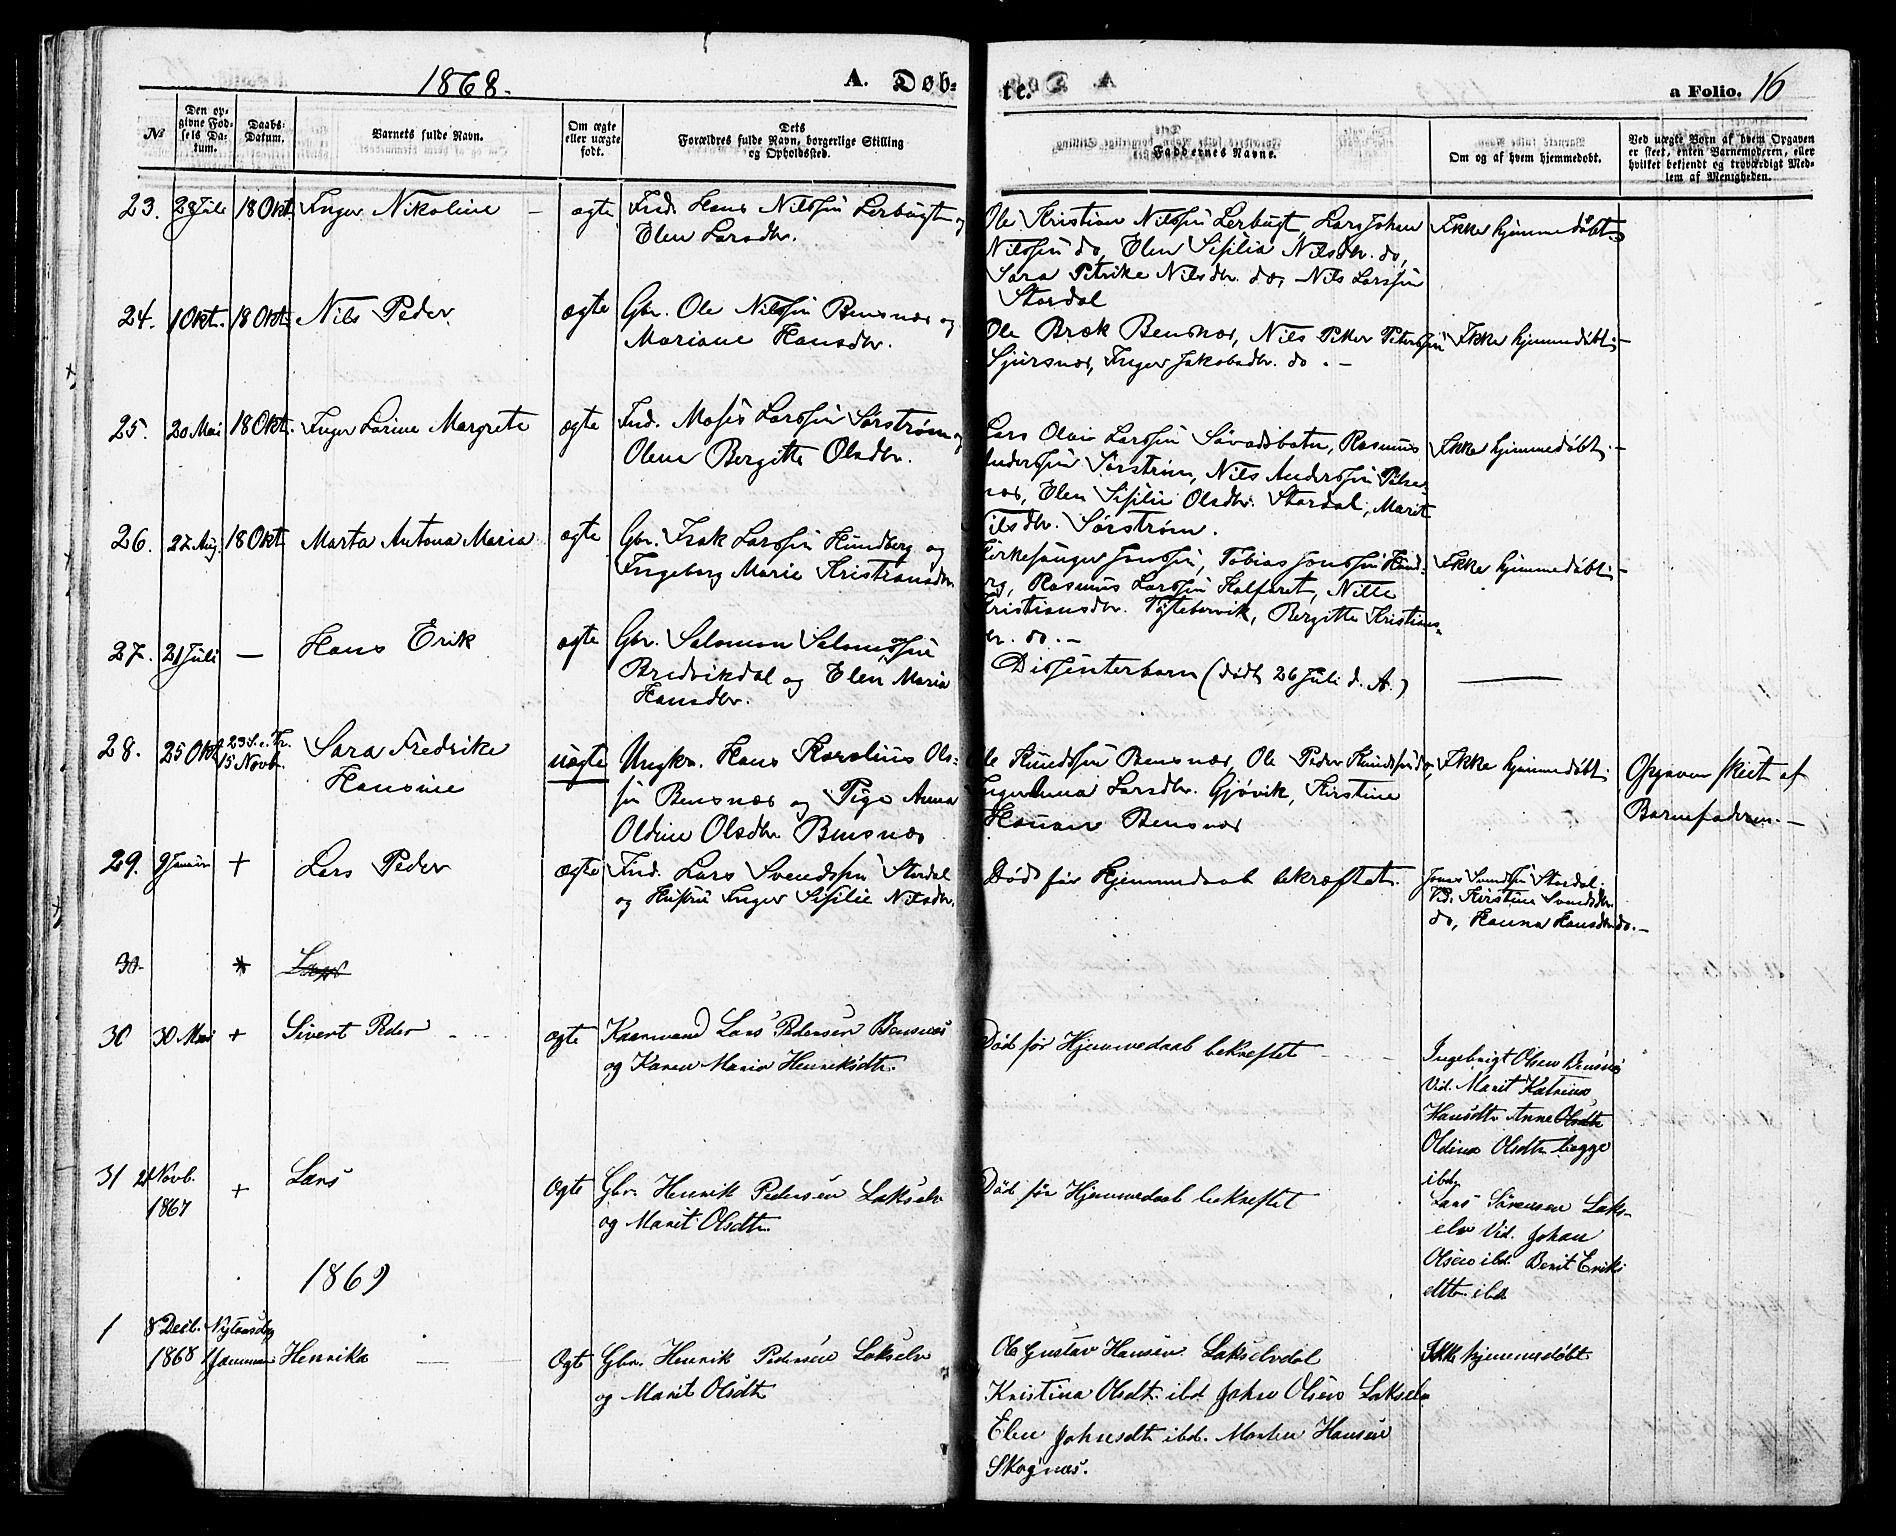 1868.
A. Døb-
te.
a Folio. 16
№
Den opgivne Fødsels Datum.
Daabs-Datum.
Barnets fulde Navn.
Om ægte eller uægte født.
Dets Forældres fulde Navn, borgerlige Stilling og Opholdssted.
Faddernes Navne.
Om og af hvem hjemmedøbt.
Ved uægte Børn af hvem Opgaven er skeet, enten Barnemoderen, eller hvilket bekjendt og troværdigt Medlem af Menigheden.
23. 28 Juli 18 Okt. Inger Nikoline - ægte
Ind. Hans Nilssen Lerbugt og
Elen Larsdtr.
Ole Kristian Nilssen Lerbugt, Lars Johan
Nilssen do, Elen Sisilia Nilsdtr. do,
Sara Petrike Nilsdtr. do, Nils Larssen
Stordal
Ikke hjemmedøbt
24. 1 Okt. 18 Okt. Nils Peder. ægte
Gbr. Ole Nilssen Bensnæs og
Mariane Hansdtr.
Ole Bræk Bensnæs, Nils Petter Peterssen
Sjursnæs, Inger Jakobsdtr. do. -
Ikke hjemmedøbt -
25. 20 Mai 18 Okt. Inger Lorine Margrete ægte
Ind. Moses Larssen Sørstrøm og
Olene Bergitte Olsdtr.
Lars Olai Larssen Sævadsbotn, Rasmus
Anderssen Sørstrøm, Nils Anderssen
næs, Elen Sisilie Olsdtr. Stordal, Marit
Nilsdtr. Sørstrøm.
Ikke hjemmedøbt -
26. 27 Aug. 18 Okt. Marta Antona Maria ægte
Gbr. Isak Larssen Hundberg og
Ingeborg Marie Kristiansdtr
Kirkesanger Jonssen, Tobias Jonssen Hund-
erg, Rasmus Larssen Kalfaret, Nille
Kristiansdtr. Tyttebærvik, Bergitte Kristians-
dtr. do. -
Ikke hjemmedøbt -
27. 21 Juli — Hans Erik ægte
Gbr. Salomon Salomonssen
Bredvikdal og Elen Maria
Hansdtr.
Dissenterbarn (død 26 Juli d. A.)
28. 25 Okt 23 S. e. Tr.
15 Novb. Sara Fredrike
Hansine
uægte Ungkr. Hans Karolius Ols-
sen Bensnæs og Pige Anna
Oldine Olsdtr. Bensnæs
Ole Knudssen Bensnæs, Ole Peder Knudssen do,
Inger Anna Larsdtr. Gjøvik, Kirstine
Hansen Bensnæs
Ikke hjemmedøbt
Opgaven skeet af
Barnefaderen. -
29. 9 Januar + Lars Peder ægte
Ind. Lars Svendssen Stordal
og Hustru Inger Sisilie Nilsdtr.
Død før Hjemmedaab bekræftet.
Jonas Svendssen Stordal.
Vid. Kirstine Svendsdtr.
do, Hanna Hansdtr do. -
30 * Lars
30 30 Mai + Sivert Peder ægte
Kaarmand Lars Pedersen Bensnæs
og Karen Maria Henriksdtr.
Død før Hjemmedaab bekreftet
Ingebrigt Olsen Bensnæs
Vid. Marit Katrina
Hansdtr Anne Olsdtr
Oldina Olsdtr begge
ibd.
31 21 Novb.
1867 + Lars Ægte
Gbr. Henrik Pedersen Lakselv
og Marit Olsdtr.
Død før Hjemmedaab bekreftet
Lars Sørensen Laks-
elv Vid. Johan
Olsen ibd. Berit Eriks
dtr. ibd
1869
1 8 Decb. Nytaarsdag
1868 1 Januar Henrika Ægte
Gbr. Henrik Pedersen Lakselv
og Marit Olsdtr
Ole Gustav Hansen Lakselvdal
Kristina Olsdtr. ibd John Olsen Lakselv
Elen Johnsdtr ibd. Morten Hansen
Skognæs.
Ikke hjemmedøbt